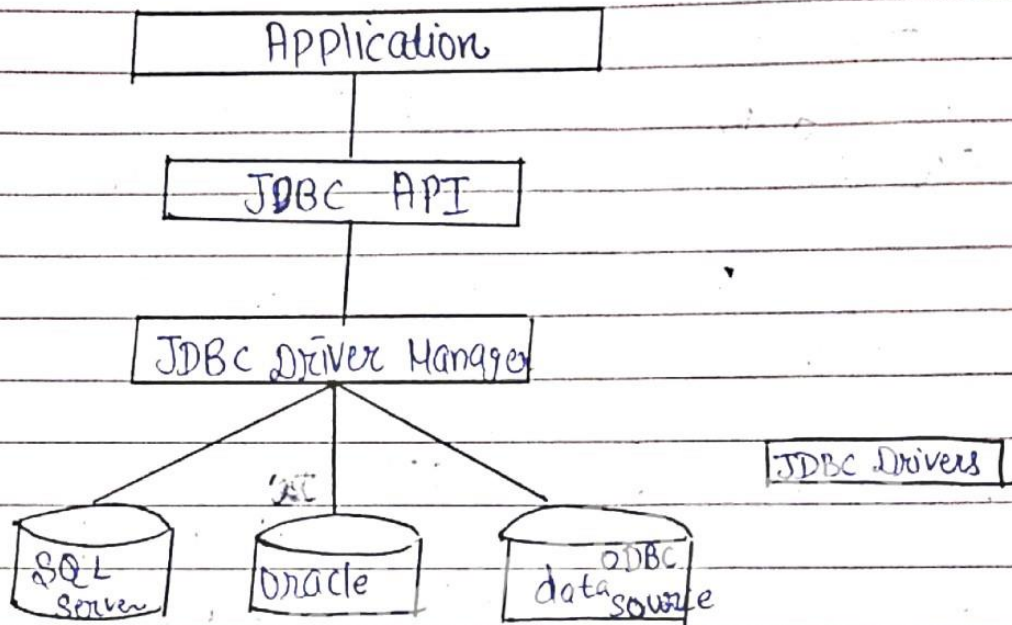 Application
JDBC API
JDBC Driver Manager
JDBC Drivers
SQL
Server
Oracle
ODBC
data source